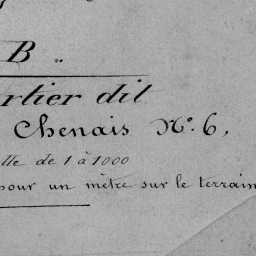 B..
rtier dit
Chenais N.° 6,
lle de 1 à 1000
pour un mètre sur le terrain